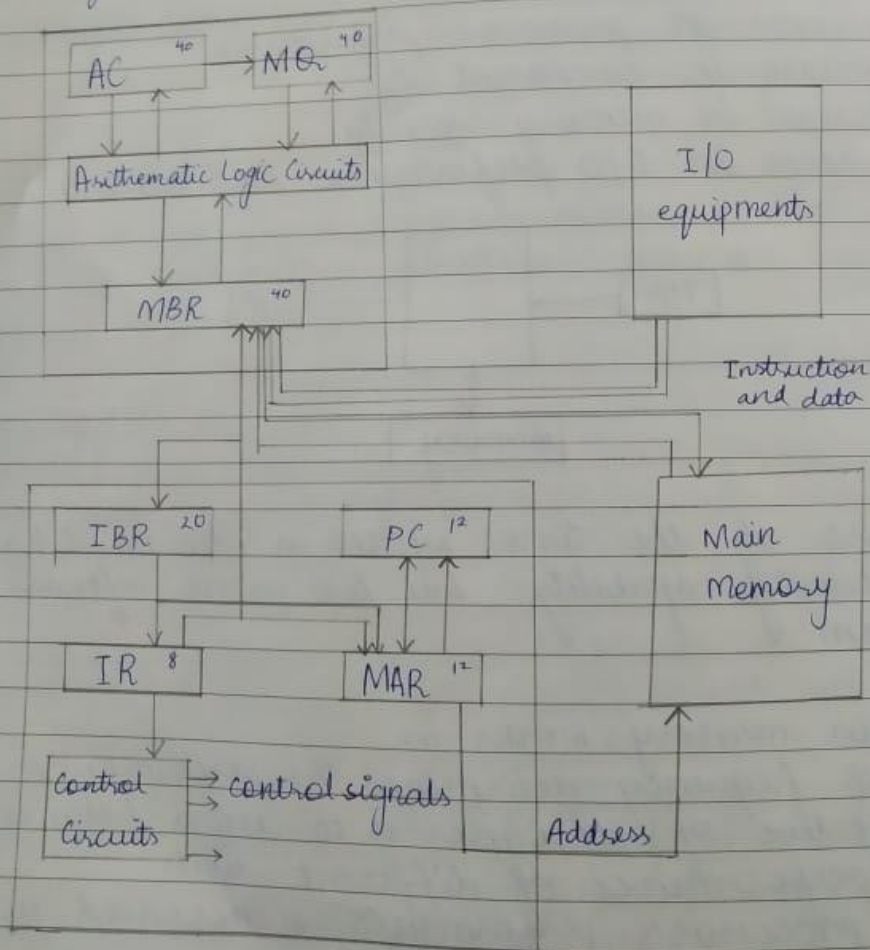 AC 40
MQ 40
Arithematic Logic Circuits
MBR 40
I/O
equipments
Instruction
and data
IBR 20
PC 12
Main
Memory
IR 8
MAR 12
Control
Circuits
control signals
Address